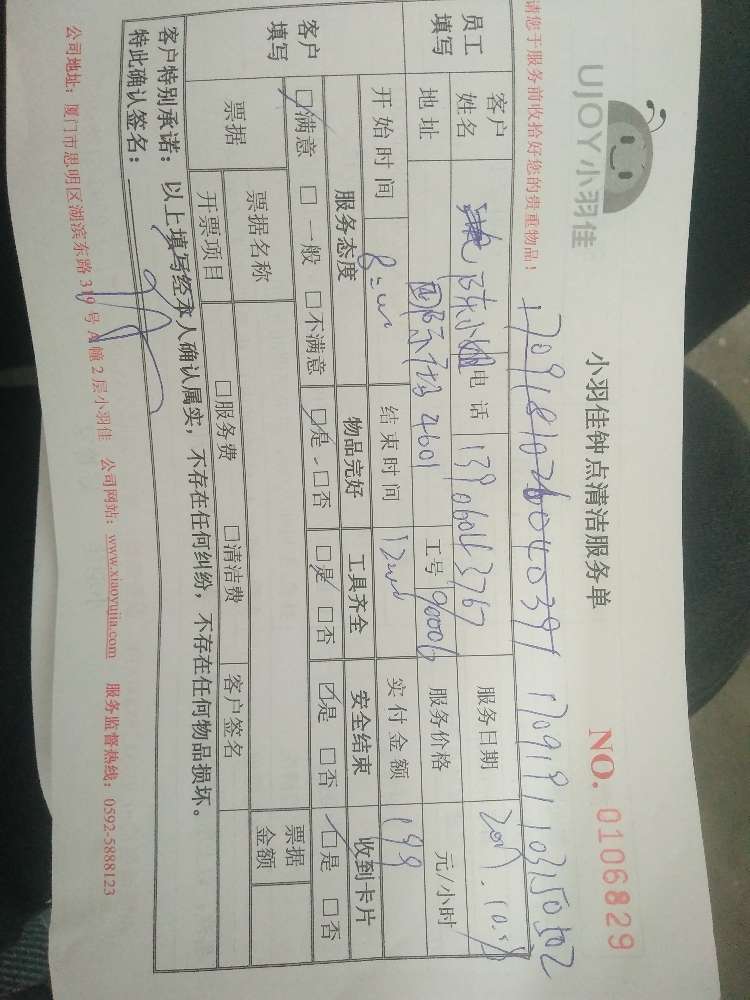 UJOY小羽佳
小羽佳钟点清洁服务单
NO. 0106829
请您于服务前收拾好您的贵重物品！
员工填写 客户姓名 陈小姐 电话 13906043767 服务日期
地址 4601 工号 90006 服务价格 元/小时
客户填写 开始时间 结束时间 实付金额 199
服务态度 物品完好 工具齐全 安全结束 收到卡片
☑满意 □一般 □不满意 ☑是 □否 ☑是 □否 ☑是 □否 ☑是 □否
票据 票据名称 票据金额
开票项目 □服务费 □清洁费 客户签名
客户特别承诺：以上填写经本人确认属实，不存在任何纠纷，不存在任何物品损坏。
特此确认签名：
公司地址：厦门市思明区湖滨东路319号A幢2层小羽佳 公司网站：www.xiaoyujia.com 服务监督热线：0592-5888123